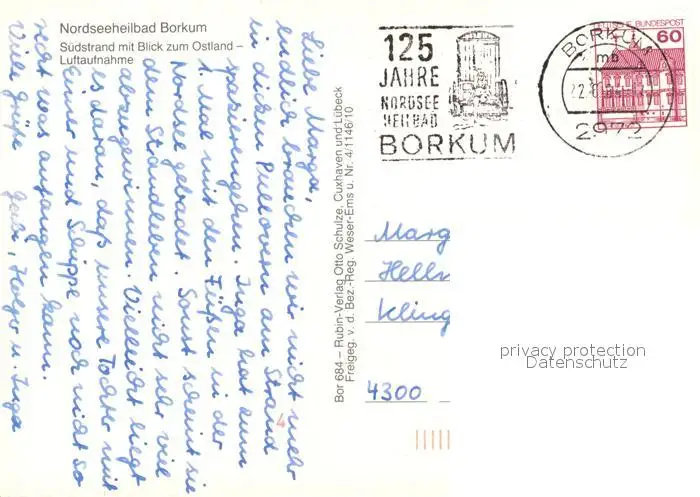 Nordseeheilbad Borkum
Südstrand mit Blick zum Ostland –
Luftaufnahme
Liebe Marga,
endlich brauchen wir nicht mehr
in dicken Pullovern am Strand
spazierengehen. Inga hat zum
1. Mal mit den Füßen in der
Nordsee gebadet. Sonst scheint sie
dem Strandleben nicht sehr viel
abzugewinnen. Vielleicht liegt
es daran, daß unsere Tochter mit
Eimer und Schippe noch nicht so
recht was anfangen kann.
Viele Grüße Holger u. Inga
Bor 684 – Rubin-Verlag Otto Schulze, Cuxhaven und Lübeck
Freigeg. v. d. Bez.-Reg. Weser-Ems u. Nr. 4/1146/10
125
JAHRE
NORDSEE
HEILBAD
BORKUM
BORKUM 1
mb
2972
DEUTSCHE BUNDESPOST
60
Marg
Hells
Kling
4300
privacy protection
Datenschutz